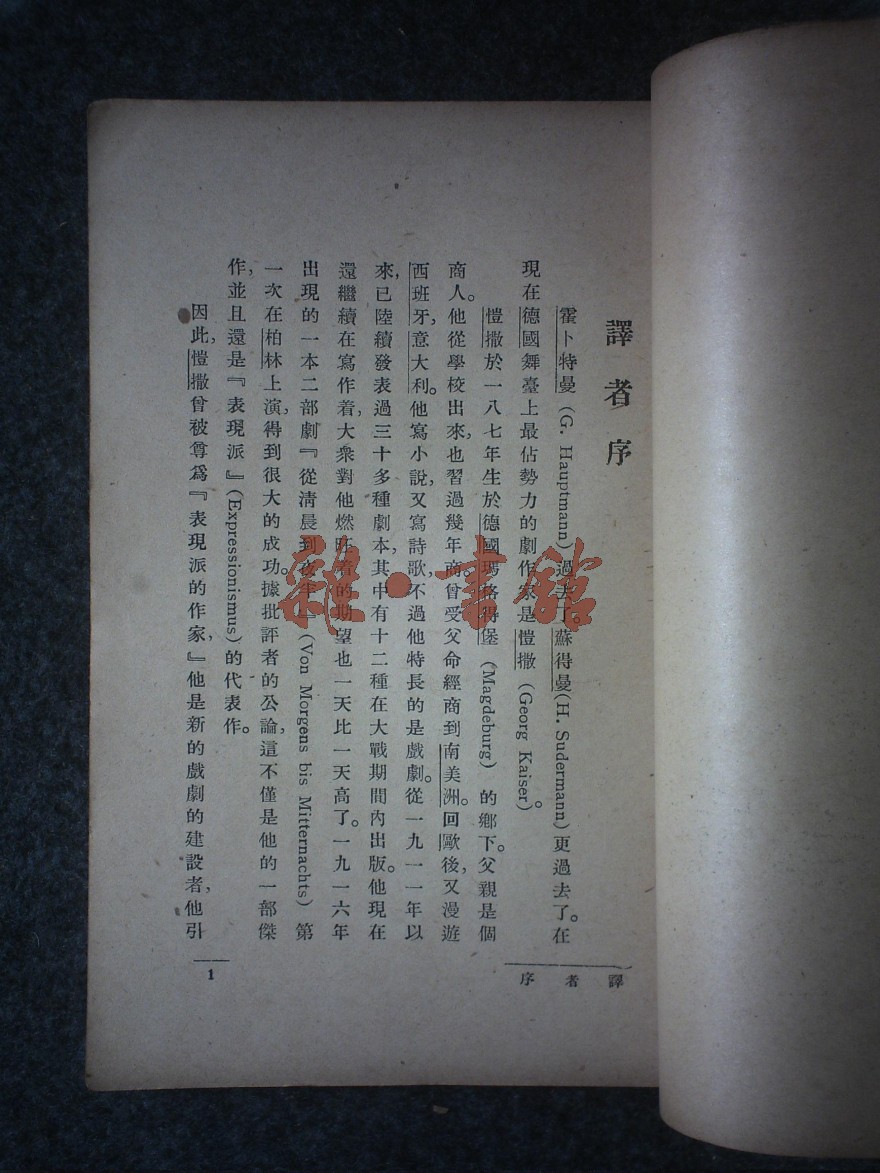 譯者序
霍卜特曼 (G. Hauptmann) 過去了。蘇得曼 (H. Sudermann) 更過去了。在
現在德國舞臺上最佔勢力的劇作家是愷撒 (Georg Kaiser)。
愷撒於一八七年生於德國瑪格得堡 (Magdeburg) 的鄉下。父親是個
商人。他從學校出來,也習過幾年商。曾受父命經商到南美洲。回歐後,又漫遊
西班牙,意大利。他寫小說,又寫詩歌,不過他特長的是戲劇。從一九一一年以
來,已陸續發表過三十多種劇本,其中有十二種在大戰期間內出版。他現在
還繼續在寫作着,大衆對他燃旺着的期望也一天比一天高了。一九一六年
出現的一本二部劇『從清晨到夜半』(Von Morgens bis Mitternachts) 第
一次在柏林上演,得到很大的成功。據批評者的公論,這不僅是他的一部傑
作,並且還是『表現派』(Expressionismus) 的代表作。
因此,愷撒曾被尊爲『表現派的作家,』他是新的戲劇的建設者,他引
譯者序
1
雜·書館